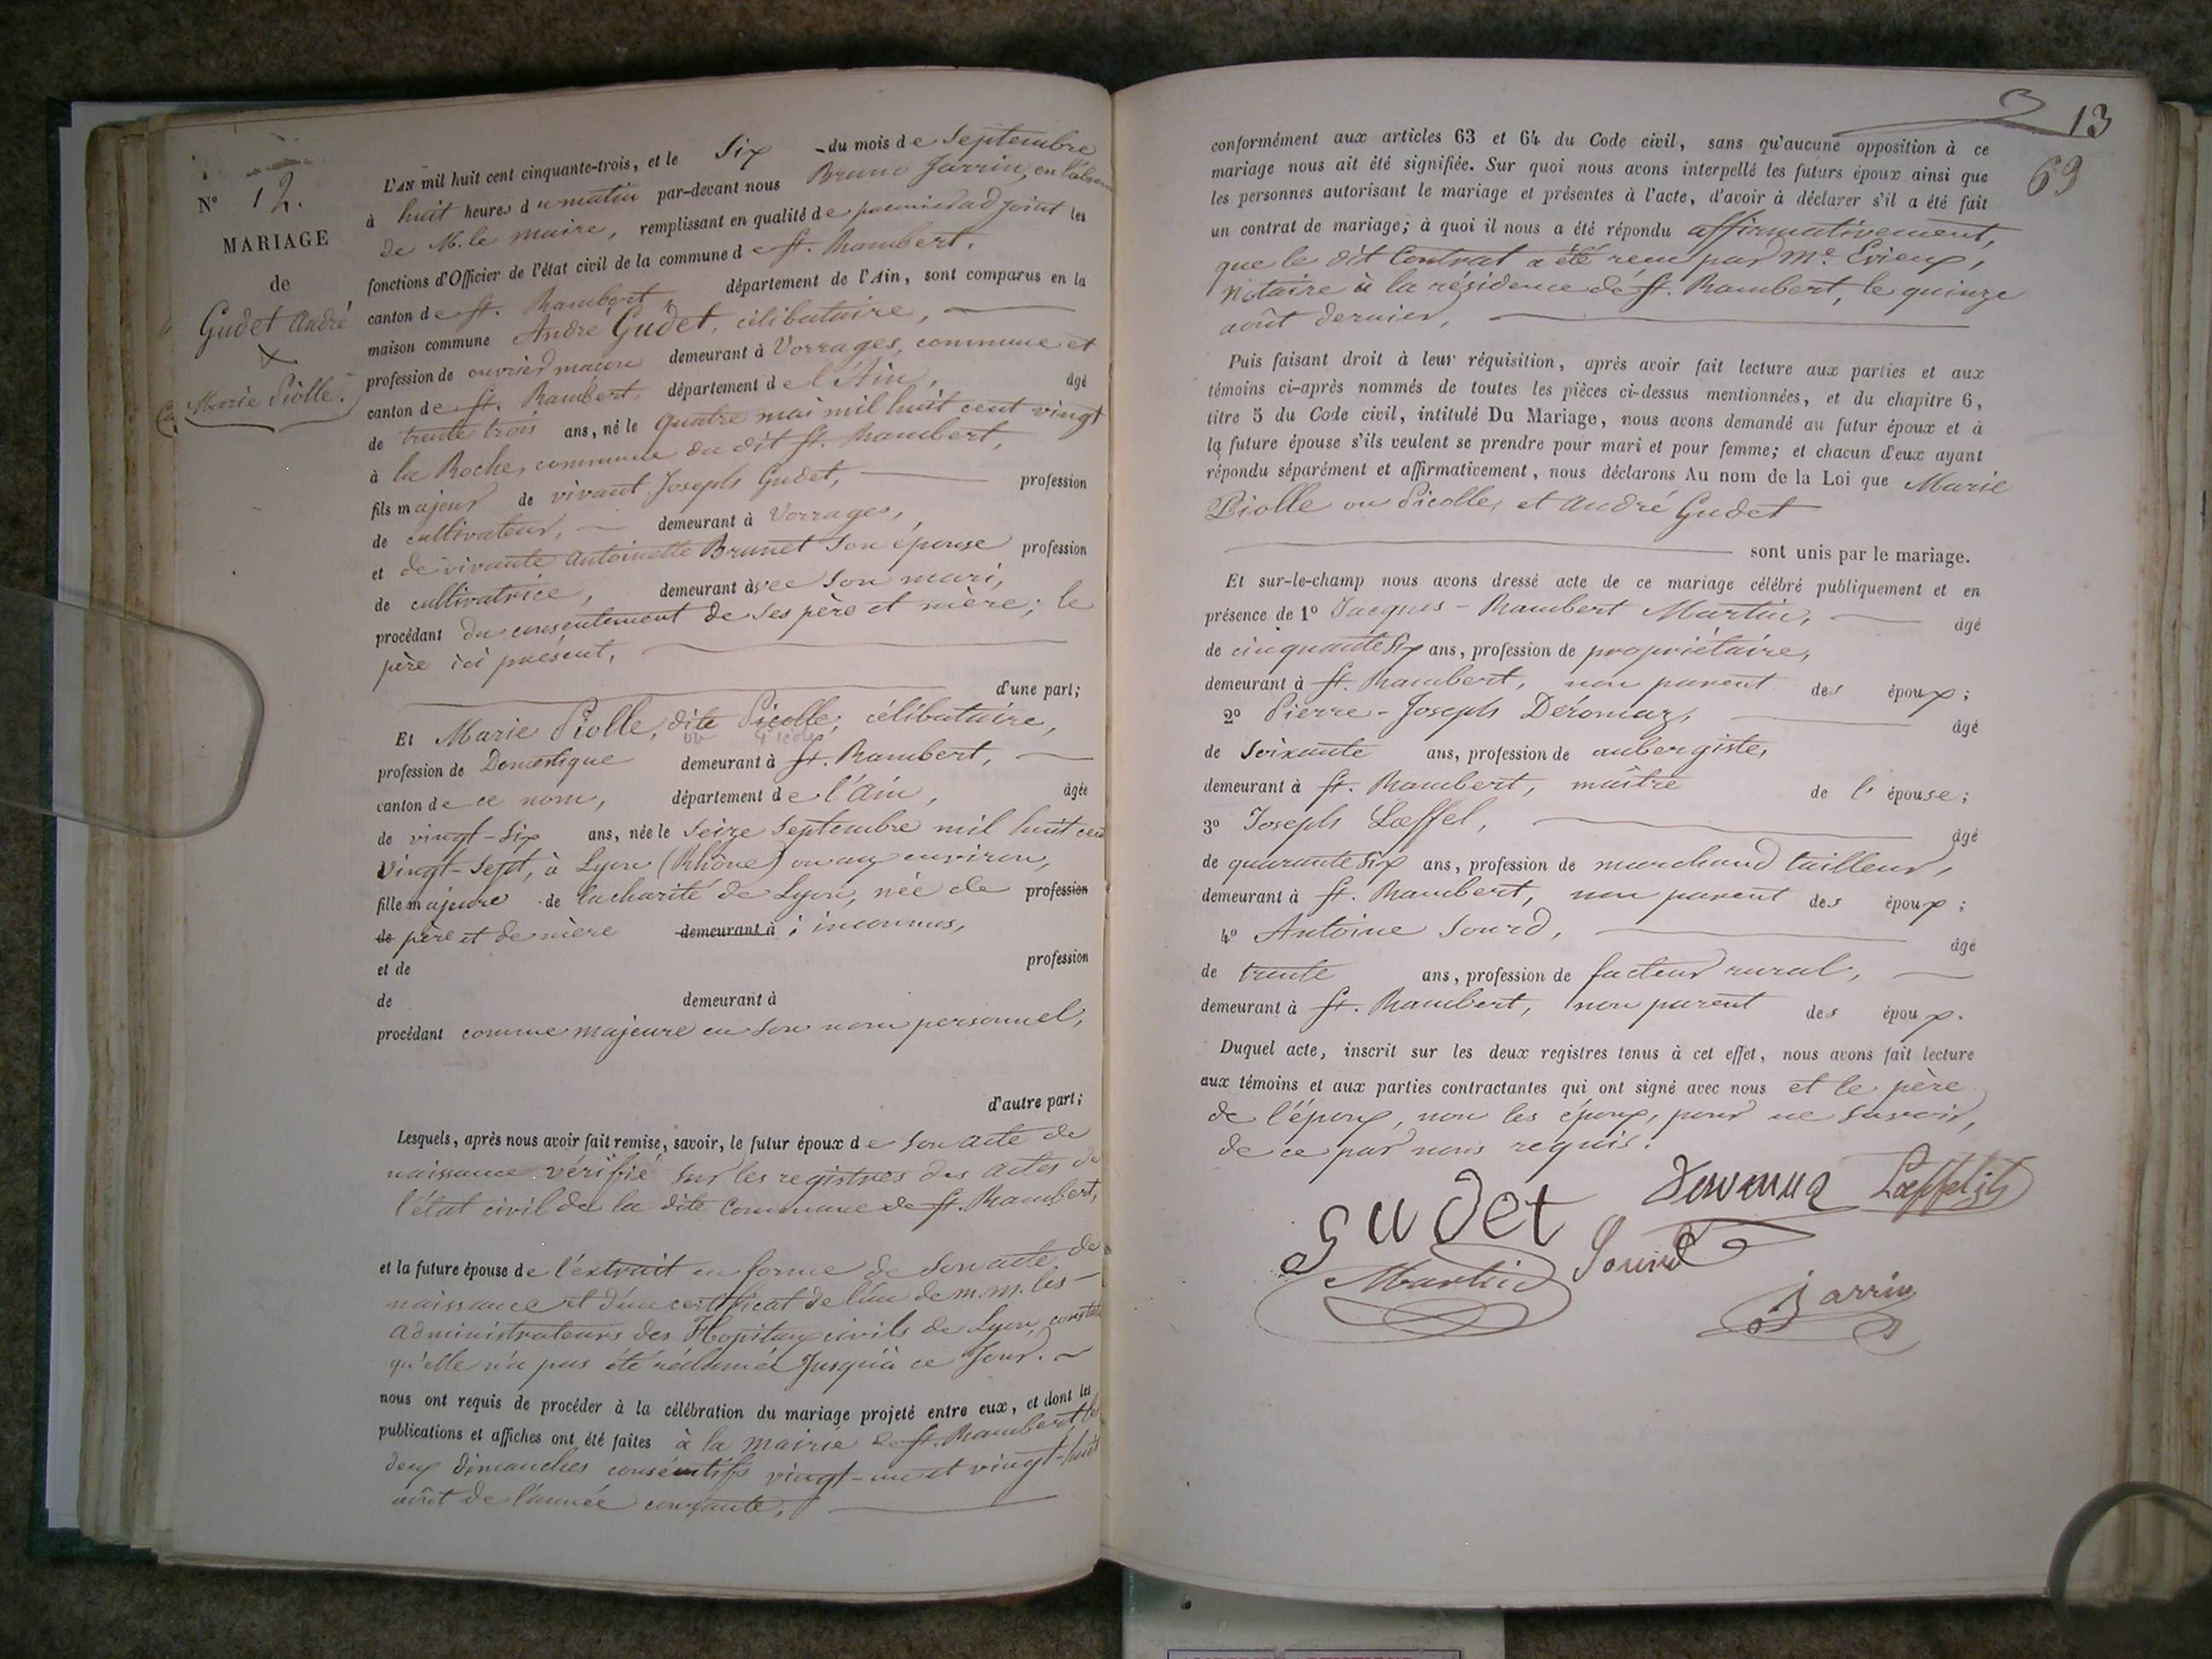 N° 12.
MARIAGE
de
Gudet André
&
Marie Piolle.
L'AN mil huit cent cinquante-trois, et le Six du mois de Septembre
à huit heures du matin par-devant nous Bruno Jarrin, en l'absence
de M. le maire, remplissant en qualité de premier adjoint les
fonctions d'Officier de l'état civil de la commune de St. Rambert,
canton de St. Rambert, département de l'Ain, sont comparus en la
maison commune André Gudet, célibataire,
profession de ouvrier maçon demeurant à Vorrages, commune et
canton de St. Rambert, département de l'Ain, âgé
de trente trois ans, né le quatre mai mil huit cent vingt
à la Roche, commune du dit St. Rambert,
fils majeur de vivant Joseph Gudet, profession
de cultivateur, demeurant à Vorrages,
et de vivante Antoinette Brunet son épouse profession
de cultivatrice, demeurant avec son mari,
procédant du consentement de ses père et mère; le
père ici présent,
d'une part;
Et Marie Piolle, dite Picolle, célibataire,
ou
profession de Domestique demeurant à St. Rambert,
canton de ce nom, département de l'Ain, âgée
de vingt-six ans, née le seize Septembre mil huit cent
vingt-sept, à Lyon (Rhône) ou aux environ,
fille majeure de la charité de Lyon, née de profession
de père et de mère demeurant à ; inconnus,
et de profession
de demeurant à
procédant comme majeure en son nom personnel,
d'autre part;
Lesquels, après nous avoir fait remise, savoir, le futur époux de son acte de
naissance vérifié sur les registres des actes de
l'état civil de la dite Commune de St. Rambert,
et la future épouse de l'extrait en forme de son acte de
naissance et d'un certificat de l'un de m.m. les
administrateurs des Hopitaux civils de Lyon, constatant
qu'elle n'a pas été réclamée jusqu'à ce jour.
nous ont requis de procéder à la célébration du mariage projeté entre eux, et dont les
publications et affiches ont été faites à la mairie de St. Rambert, les
deux dimanches consécutifs vingt-un et vingt-huit
août de l'année courante,
13
69
conformément aux articles 63 et 64 du Code civil, sans qu'aucune opposition à ce
mariage nous ait été signifiée. Sur quoi nous avons interpellé les futurs époux ainsi que
les personnes autorisant le mariage et présentes à l'acte, d'avoir à déclarer s'il a été fait
un contrat de mariage; à quoi il nous a été répondu affirmativement,
que le dit Contrat a été reçu par Me. Evieux,
Notaire à la résidence de St. Rambert, le quinze
août dernier,
Puis faisant droit à leur réquisition, après avoir fait lecture aux parties et aux
témoins ci-après nommés de toutes les pièces ci-dessus mentionnées, et du chapitre 6,
titre 5 du Code civil, intitulé Du Mariage, nous avons demandé au futur époux et à
la future épouse s'ils veulent se prendre pour mari et pour femme; et chacun d'eux ayant
répondu séparément et affirmativement, nous déclarons Au nom de la Loi que Marie
Piolle ou Picolle, et André Gudet
sont unis par le mariage.
Et sur-le-champ nous avons dressé acte de ce mariage célébré publiquement et en
présence de 1° Jacques-Rambert Martin, âgé
de cinquante six ans, profession de propriétaire,
demeurant à St. Rambert, non parent des époux;
2° Pierre-Joseph Déromaz, âgé
de soixante ans, profession de aubergiste,
demeurant à St. Rambert, maître de l' épouse;
3° Joseph Lœffel, âgé
de quarante six ans, profession de marchand tailleur,
demeurant à St. Rambert, non parent des époux;
4° Antoine Sourd, âgé
de trente ans, profession de facteur rural,
demeurant à St. Rambert, non parent des époux.
Duquel acte, inscrit sur les deux registres tenus à cet effet, nous avons fait lecture
aux témoins et aux parties contractantes qui ont signé avec nous et le père
de l'époux, non les époux, pour ne savoir,
de ce par nous requis.
Gudet Lœffel
Martin Sourd
Jarrin